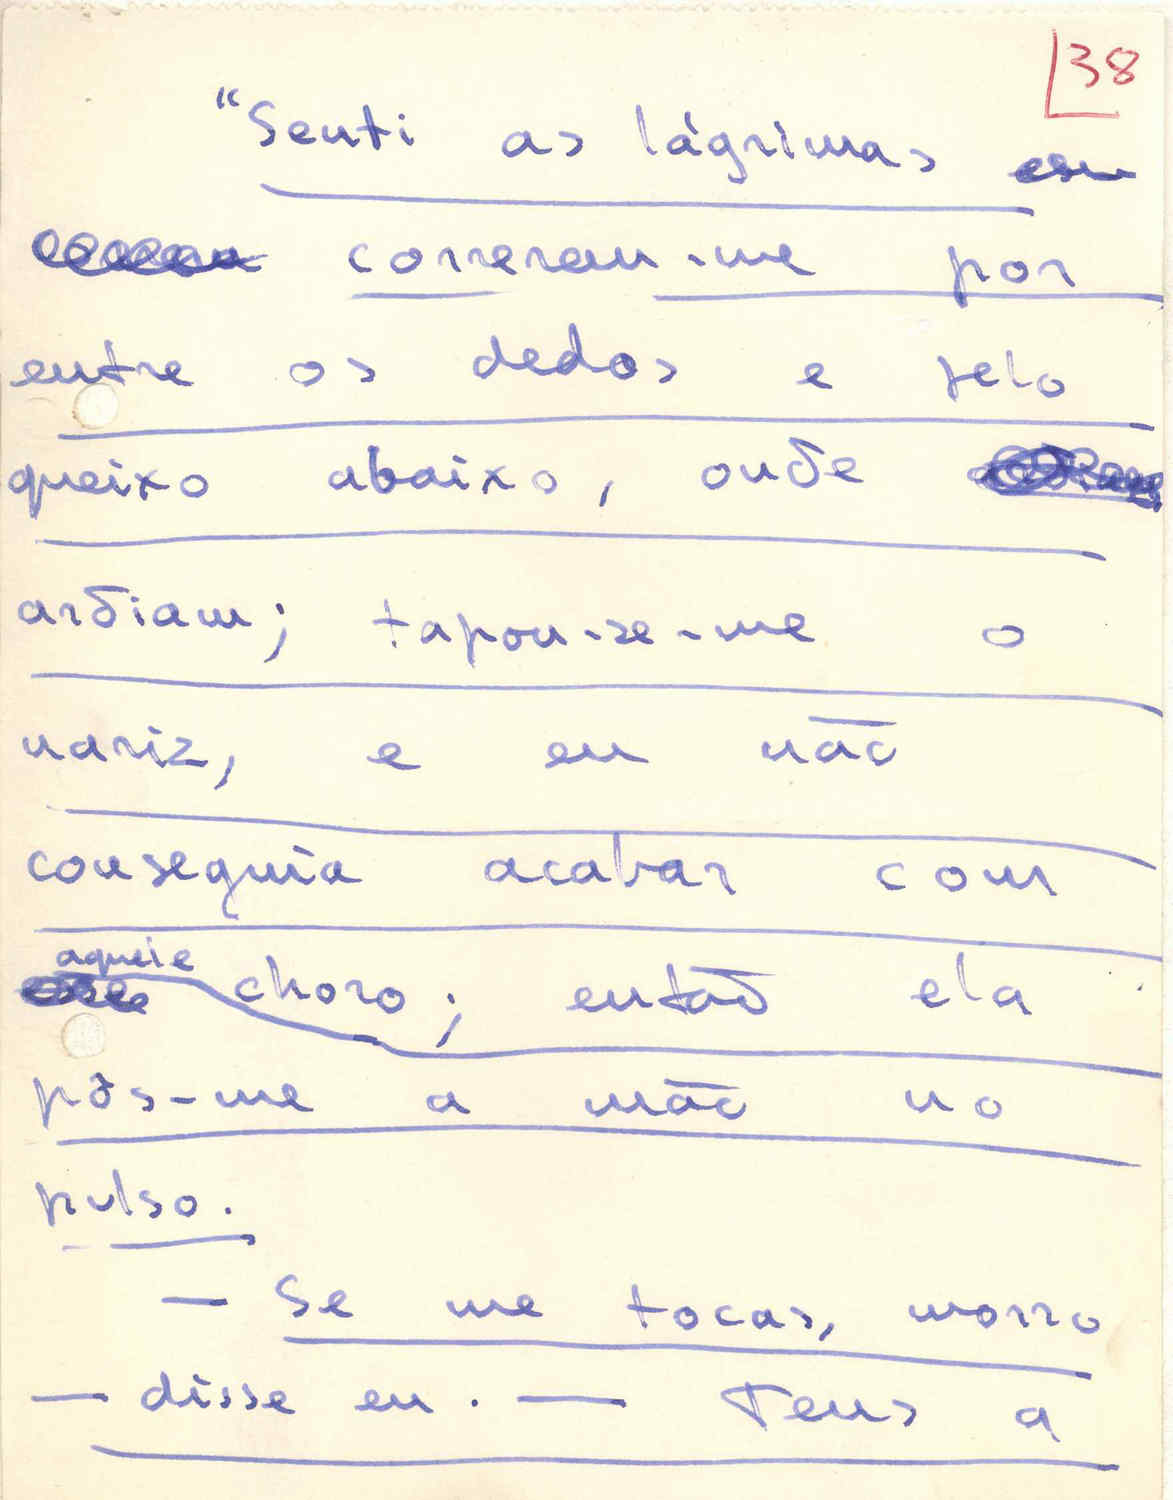 38
"Senti as lágrimas
correrem-me por
entre os dedos e pelo
queixo abaixo, onde
ardiam; tapou-se-me o
nariz, e eu não
conseguia acabar com
aquele
choro; então ela
pôs-me a mão no
pulso.
— Se me tocas, morro
— disse eu. — Tens a